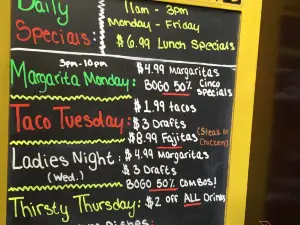 Daily
Specials:
11am - 3pm
Monday - Friday
$6.99 Lunch Specials
3pm-10pm
Margarita Monday:
$4.99 Margaritas
BOGO 50% Cinco Specials
Taco Tuesday:
$1.99 tacos
$3 Drafts
$8.99 Fajitas (Steak or Chicken)
Ladies Night:
(Wed.)
$4.99 Margaritas
$3 Drafts
BOGO 50% COMBOS!
Thirsty Thursday:
$2 off ALL Drinks